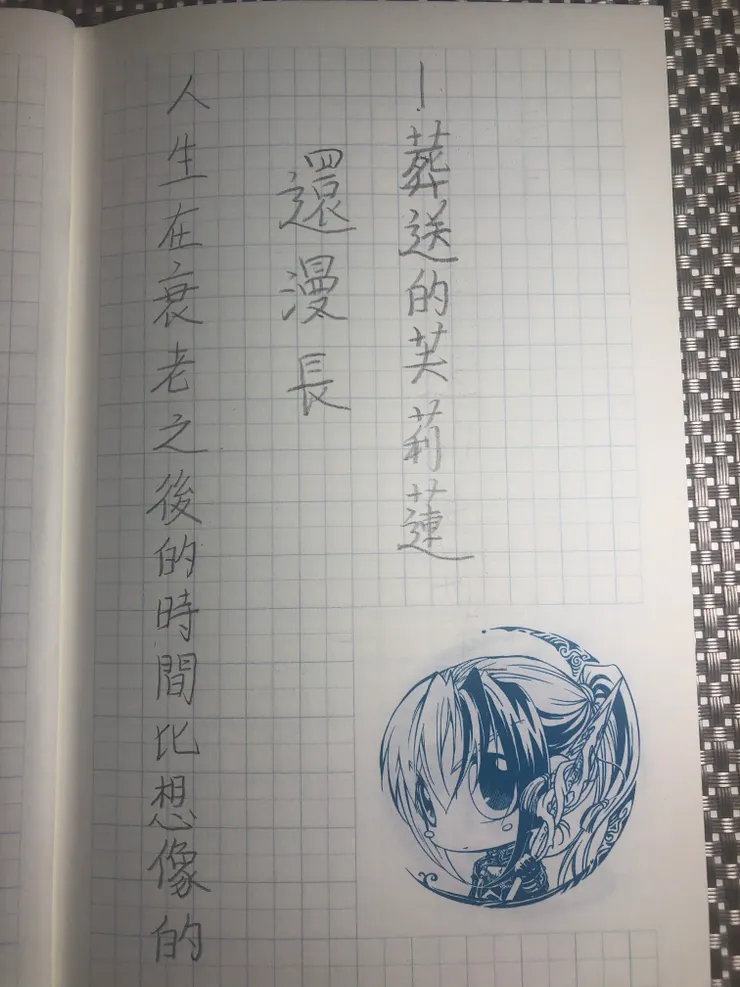 人生在衰老之後的時間比想像的
還漫長
—葬送的芙莉蓮